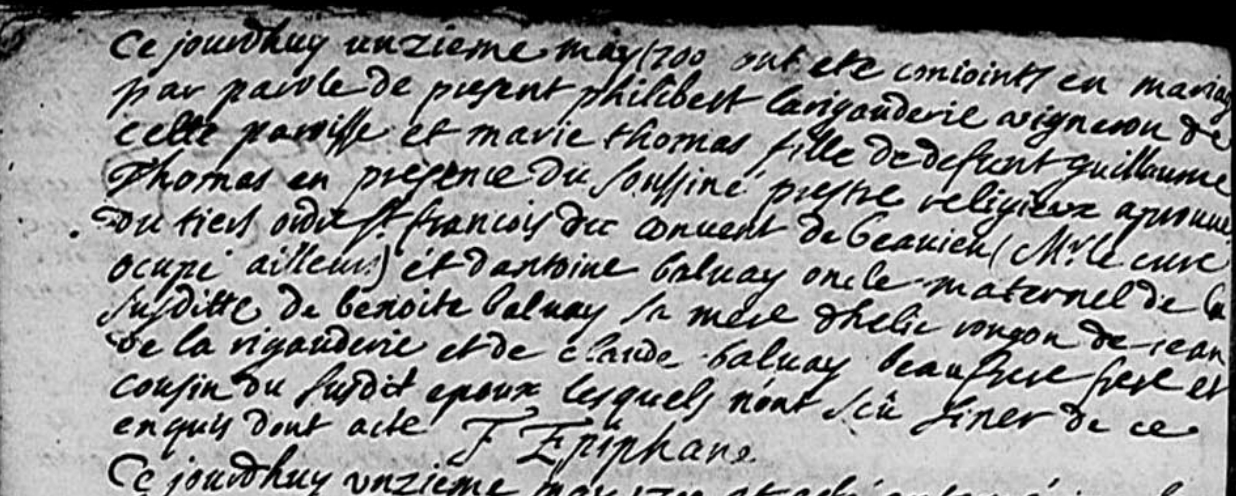 Ce jourdhuy unzieme may 1700 ont ete conioints en mariag
par parole de present philibert larigauderie vigneron de
cette parroisse et marie thomas fille de defunt guillaume
Thomas en presence du soussiné prestre religieux aprouvé
du tiers ordre st. francois du convent de beauieu (Mr. le curé
ocupé ailleurs) et dantoine balvay oncle maternel de la
susditte de benoite balvay sa mere dhelie rongon de jean
de la rigauderie et de claude balvay beaufrere frere et
cousin du susdit epoux lesquels n'ont sçû siner de ce
enquis dont acte F Epiphane
Ce jourdhuy unzieme may 1700